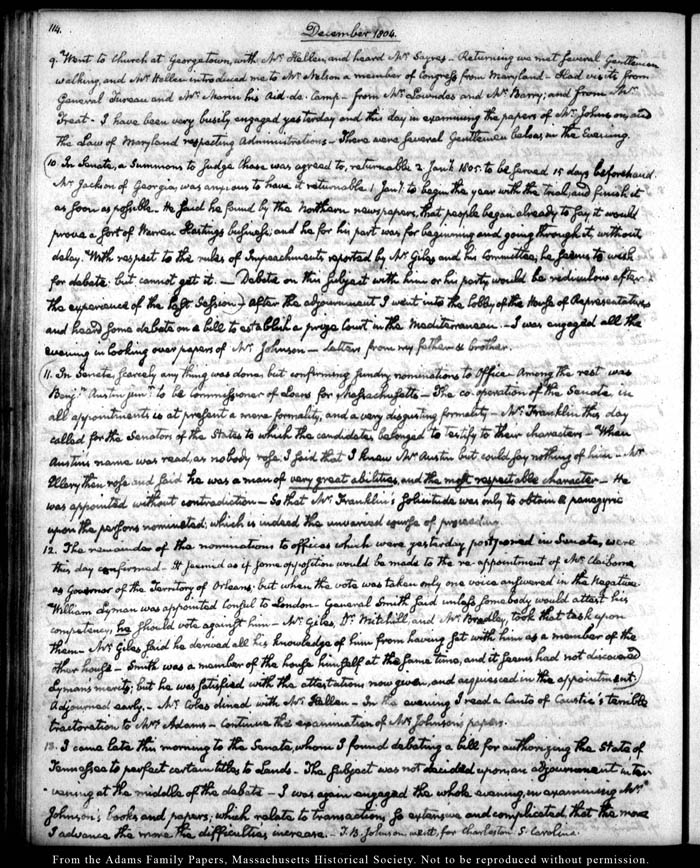 114.
December 1804.
9. Went to Church at Georgetown, with Mrs. Hellen, and heard Mr. Sayrs. Returning we met several Gentlemen
walking, and Mr. Hellen introduced me to Mr. Nelson a member of Congress from Maryland — Had visits from
General Tureau and Mr. Marin his Aid-de-Camp — from Mr. Lowndes and Mr. Barry; and from Mr.
Treat — I have been very busily engaged yesterday and this day in examining the papers of Mr. Johnson, and
the Law of Maryland respecting Administrations — There were several Gentlemen below, in the Evening.
10. In Senate, a Summons to Judge Chase was agreed to, returnable 2 Jany. 1805. to be served 15 days beforehand.
Mr. Jackson of Georgia, was anxious to have it returnable 1 Jany. to begin the year with the trial, and finish it
as soon as possible. He said he found by the Northern newspapers, that people began already to say it would
prove a sort of Warren Hastings business; and he for his part was for beginning and going through it, without
delay. With respect to the rules of Impeachment, reported by Mr. Giles and his Committee, he seems to wish
for debate: but cannot get it. — Debate on this subject with him or his party, would be rediculous after
the experience of the last Session) — After the adjournment I went into the lobby of the House of Representatives
and heard some debate on a bill to establish a prize Court in the Mediterranean. — I was engaged all the
evening in looking over papers of Mr. Johnson — Letters from my father & brother.
11. In Senate, scarcely any thing was done but confirming sundry nominations to Office. Among the rest was
Benjn. Austin junr. to be Commissioner of Loans for Massachusetts — The co-operation of the Senate in
all appointments is at present a mere formality, and a very disgusting formality — Mr. Franklin this day
called for the Senators of the States to which the candidates belonged to testify to their characters — When
Austin's name was read, as nobody rose, I said that I knew Mr. Austin but could say nothing of him — Mr.
Ellery then rose and said he was a man of very great abilities, and the most respectable character — He
was appointed without contradiction — So that Mr. Franklin's solicitude was only to obtain a panegyric
upon the persons nominated; which is indeed the unvaried course of proceeding.
12. The remainder of the nominations to offices which were yesterday postponed in Senate, were
this day confirmed — It seemed as if some opposition would be made to the re-appointment of Mr. Claiborne
as Governor of the Territory of Orleans; but when the vote was taken only one voice answered in the Negative.
William Lyman was appointed Consul to London — General Smith said unless somebody would attest his
competency, he should vote against him — Mr. Giles, Dr. Mitchill, and Mr. Bradley, took that task upon
them — Mr. Giles said he derived all his knowledge of him from having sat with him as a member of the
other house — Smith was a member of the house himself at the same time, and it seems had not discovered
Lyman's merits; but he was satisfied with the attestations now given, and acquiesced in the appointment.
Adjourned early. — Mr. Coles dined with Mr. Hellen — In the evening I read a Canto of Caustic's terrible
tractoration to Mrs. Adams — Continue the examination of Mr. Johnson's papers.
13. I came late this morning to the Senate, whom I found debating a bill for authorizing the State of
Tennessee to perfect certain titles to Lands. The subject was not decided upon; an adjournment inter-
vening at the middle of the debate — I was again engaged the whole evening, in examining Mr.
Johnson's books and papers; which relate to transactions so extensive and complicated that the more
I advance the more the difficulties increase. — T. B. Johnson went, for Charleston S. Carolina.
From the Adams Family Papers, Massachusetts Historical Society. Not to be reproduced without permission.